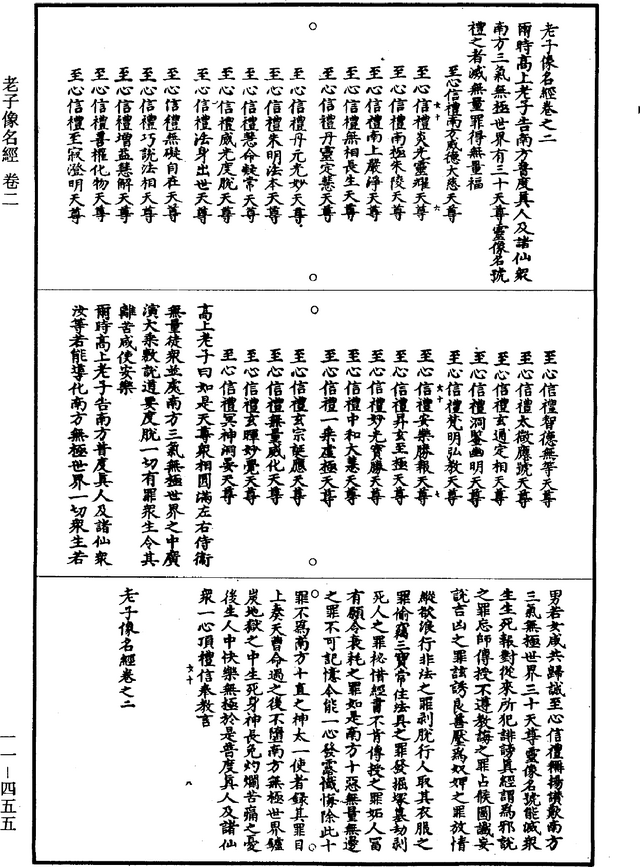 老子像名經卷之二
爾時高上老子告南方普度真人及諸仙衆
南方三氣無極世界有三十天尊靈像名號
禮之者滅無量罪得無量福
至心信禮南方威德大慈天尊
至心信禮炎光靈耀天尊
至心信禮南極朱陵天尊
至心信禮南上嚴淨天尊
至心信禮無相長生天尊
至心信禮丹靈定慧天尊
至心信禮丹元光妙天尊
至心信禮朱明法本天尊
至心信禮慧命凝常天尊
至心信禮威光度脫天尊
至心信禮法身出世天尊
至心信禮無礙自在天尊
至心信禮巧說法相天尊
至心信禮增益慧解天尊
至心信禮善權化物天尊
至心信禮至寂澄明天尊
至心信禮智德無等天尊
至心信禮太微應號天尊
至心信禮玄通定相天尊
至心信禮洞鑒幽明天尊
至心信禮梵明弘教天尊
至心信禮安樂勝報天尊
至心信禮昇玄至極天尊
至心信禮妙光寶勝天尊
至心信禮中和大慧天尊
至心信禮一乘虛極天尊
至心信禮玄宗誕應天尊
至心信禮玄暉妙覺天尊
至心信禮無量威化天尊
至心信禮冥神洞晏天尊
高上老子曰如是天尊衆相圓滿左右侍衛
無量徒衆並處南方三氣無極世界之中廣
演大乘教說道要度脫一切有罪衆生令其
離苦咸使安樂
爾時高上老子告南方普度真人及諸仙衆
汝等若能導化南方無極世界一切衆生若
男若女咸共歸誠至心信禮稱揚讚歎南方
三氣無極世界三十天尊靈像名號能滅衆
生生死報對從來所犯誹謗真經謂爲邪說
之罪忘師傳授不遵教誨之罪占候圖讖妄
說吉凶之罪詃誘良善壓爲奴婢之罪放情
縱欲浪行非法之罪剥脫行人取其衣服之
罪偷竊三寶常住法具之罪發掘塚墓劫剥
死人之罪祕惜經書不肯傳授之罪妬人富
有願令衰耗之罪如是南方十惡無量無邊
之罪不可記憶今能一心發露懺悔除此十
罪不爲南方十直之神太一使者録其罪目
上奏天曹命過之後不墮南方無極世界鑊
炭地獄之中生死身神長免灼爛苦痛之憂
後生人中快樂無極於是普度真人及諸仙
衆一心頂禮信奉教言
老子像名經卷之二
老子像名經 卷二
一一－四五五